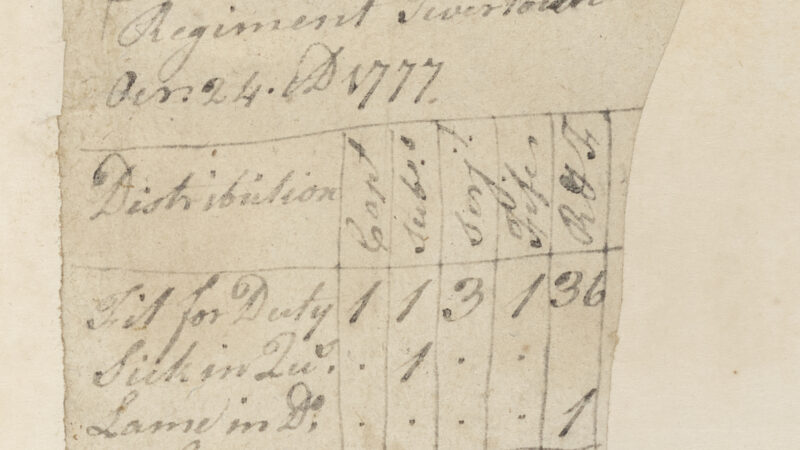 Regiment Tivertown
24. D 1777.
Distribution Capt Subs. Serjt. Fifes R & F
Fit for Duty 1 1 3 1 36
Sick in Qu.s . 1 . .
Lame in Do. . . . . 1